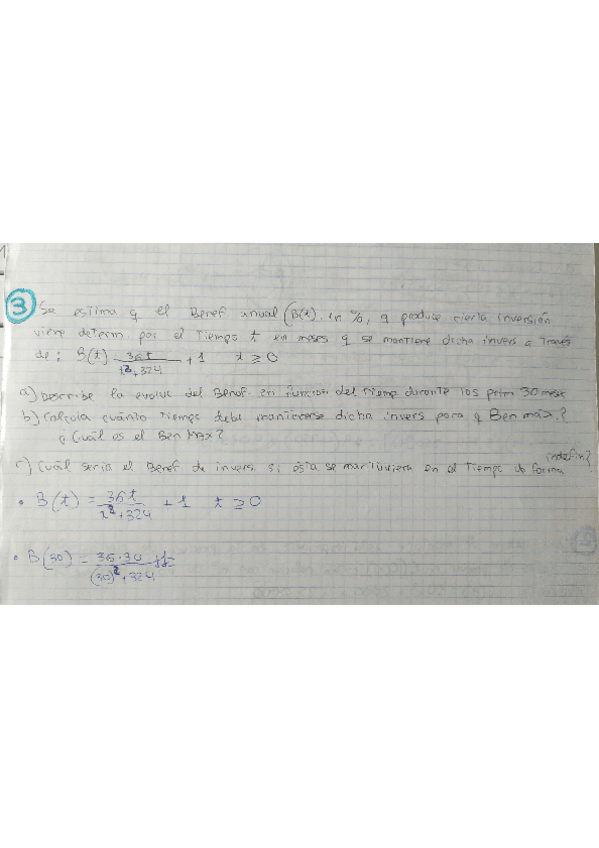 3 Se estima q el Benef anual (B(t), in %, q produce cierta inversión
viene determ por el tiempo t en meses q se mantiene dicha invers a través
de: B(t) 36t/t²+324 + 1 t ≥ 0
a) Describe la evoluc del Benef en función del tiemp durante los prim 30 mese
b) Calcula cuánto tiempo debe mantenerse dicha invers para q Ben máx.?
¿Cuál es el Ben Max?
indefin?
c) Cuál seria el Benef de invers si ésta se mantuviera en el tiempo de forma
• B(t) = 36t/t²+324 + 1 t ≥ 0
• B(30) = 36·30/(30)²+324 +1=